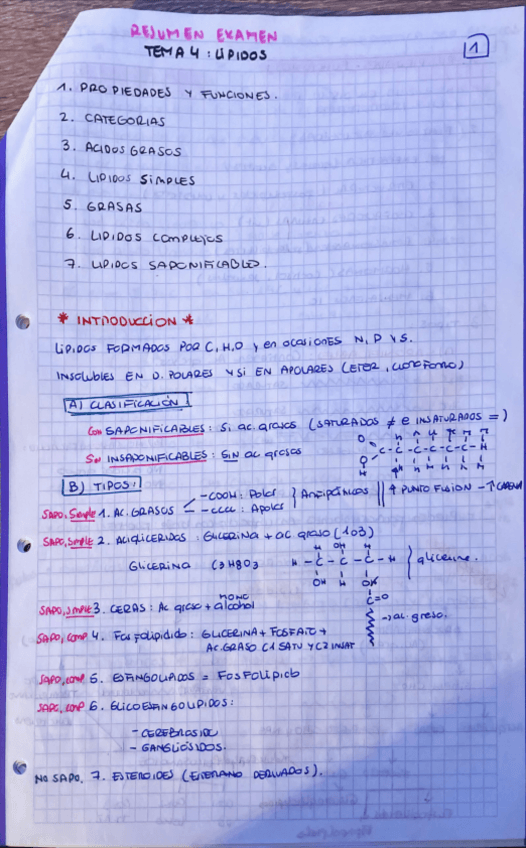 RESUMEN EXAMEN
TEMA 4: LÍPIDOS
1
1. PROPIEDADES Y FUNCIONES.
2. CATEGORIAS
3. ACIDOS GRASOS
4. LIPIDOS SIMPLES
5. GRASAS
6. LIPIDOS COMPLEJOS
7. LIPIDOS SAPONIFICABLES.
* INTRODUCCION *
LÍPIDOS FORMADOS POR C, H, O y en ocasiones N, P y S.
INSOLUBLES EN D. POLARES Y SI EN APOLARES (ETER, CLOROFORMO)
A) CLASIFICACIÓN
Con SAPONIFICABLES: Si ac. grasos (SATURADOS ≠ e INSATURADOS =)
Sin INSAPONIFICABLES: SIN ac grasos
B) TIPOS:
SAPO, Simple 1. AC. GRASOS -COOH: Polar
-CCCC: Apolar
Anfipáticos ↑ PUNTO FUSION - ↑ CADENA
SAPO, simple 2. ACILGLICERIDOS: GLICERINA + ac graso (1 o 3)
GLICERINA C3H8O3
glicerina.
SAPO, simple 3. CERAS: Ac graso + MONO alcohol
C=O
→ ac. graso.
SAPO, comp 4. Fosfolípido: GLICERINA + FOSFATO +
AC. GRASO C1 SATU Y C2 INSAT
SAPO, comp 5. ESFINGOLIPIDOS = FOSFOLÍPIDO
SAPO, comp 6. GLICOESFINGOLIPIDOS:
- CEREBROSIDO
- GANGLIÓSIDOS.
NO SAPO, 7. ESTEROIDES (ESTERANO DERIVADOS).